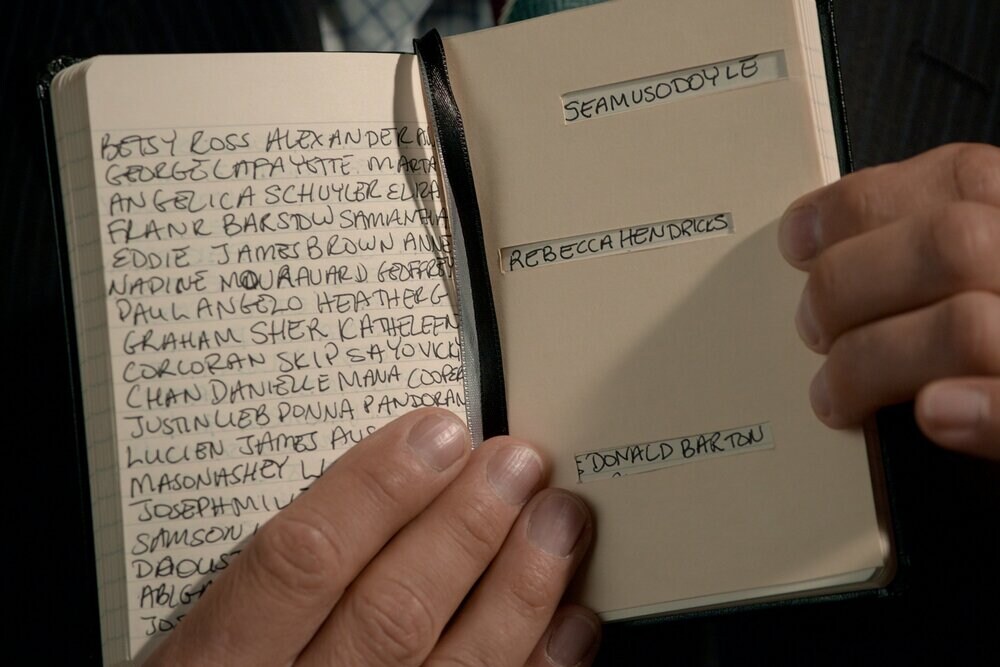 BETSY ROSS ALEXANDER
GEORGE LAFAYETTE MARTA
ANGELICA SCHUYLER ELIZA
FRANK BARSTOW SAMANTHA
EDDIE JAMES BROWN ANNE
NADINE MOURAUARD GEOFFREY
PAUL ANGELO HEATHER G
GRAHAM SHER KATHELEEN
CORCORAN SKIP SAYOVICH
CHAN DANIELLE MANA COOPER
JUSTIN LIEB DONNA PANDORAN
LUCIEN JAMES AUS
MASON ASHEY
JOSEPH MILL
SAMSON
DAOUST
SEAMUSODOYLE
REBECCA HENDRICKS
DONALD BARTON